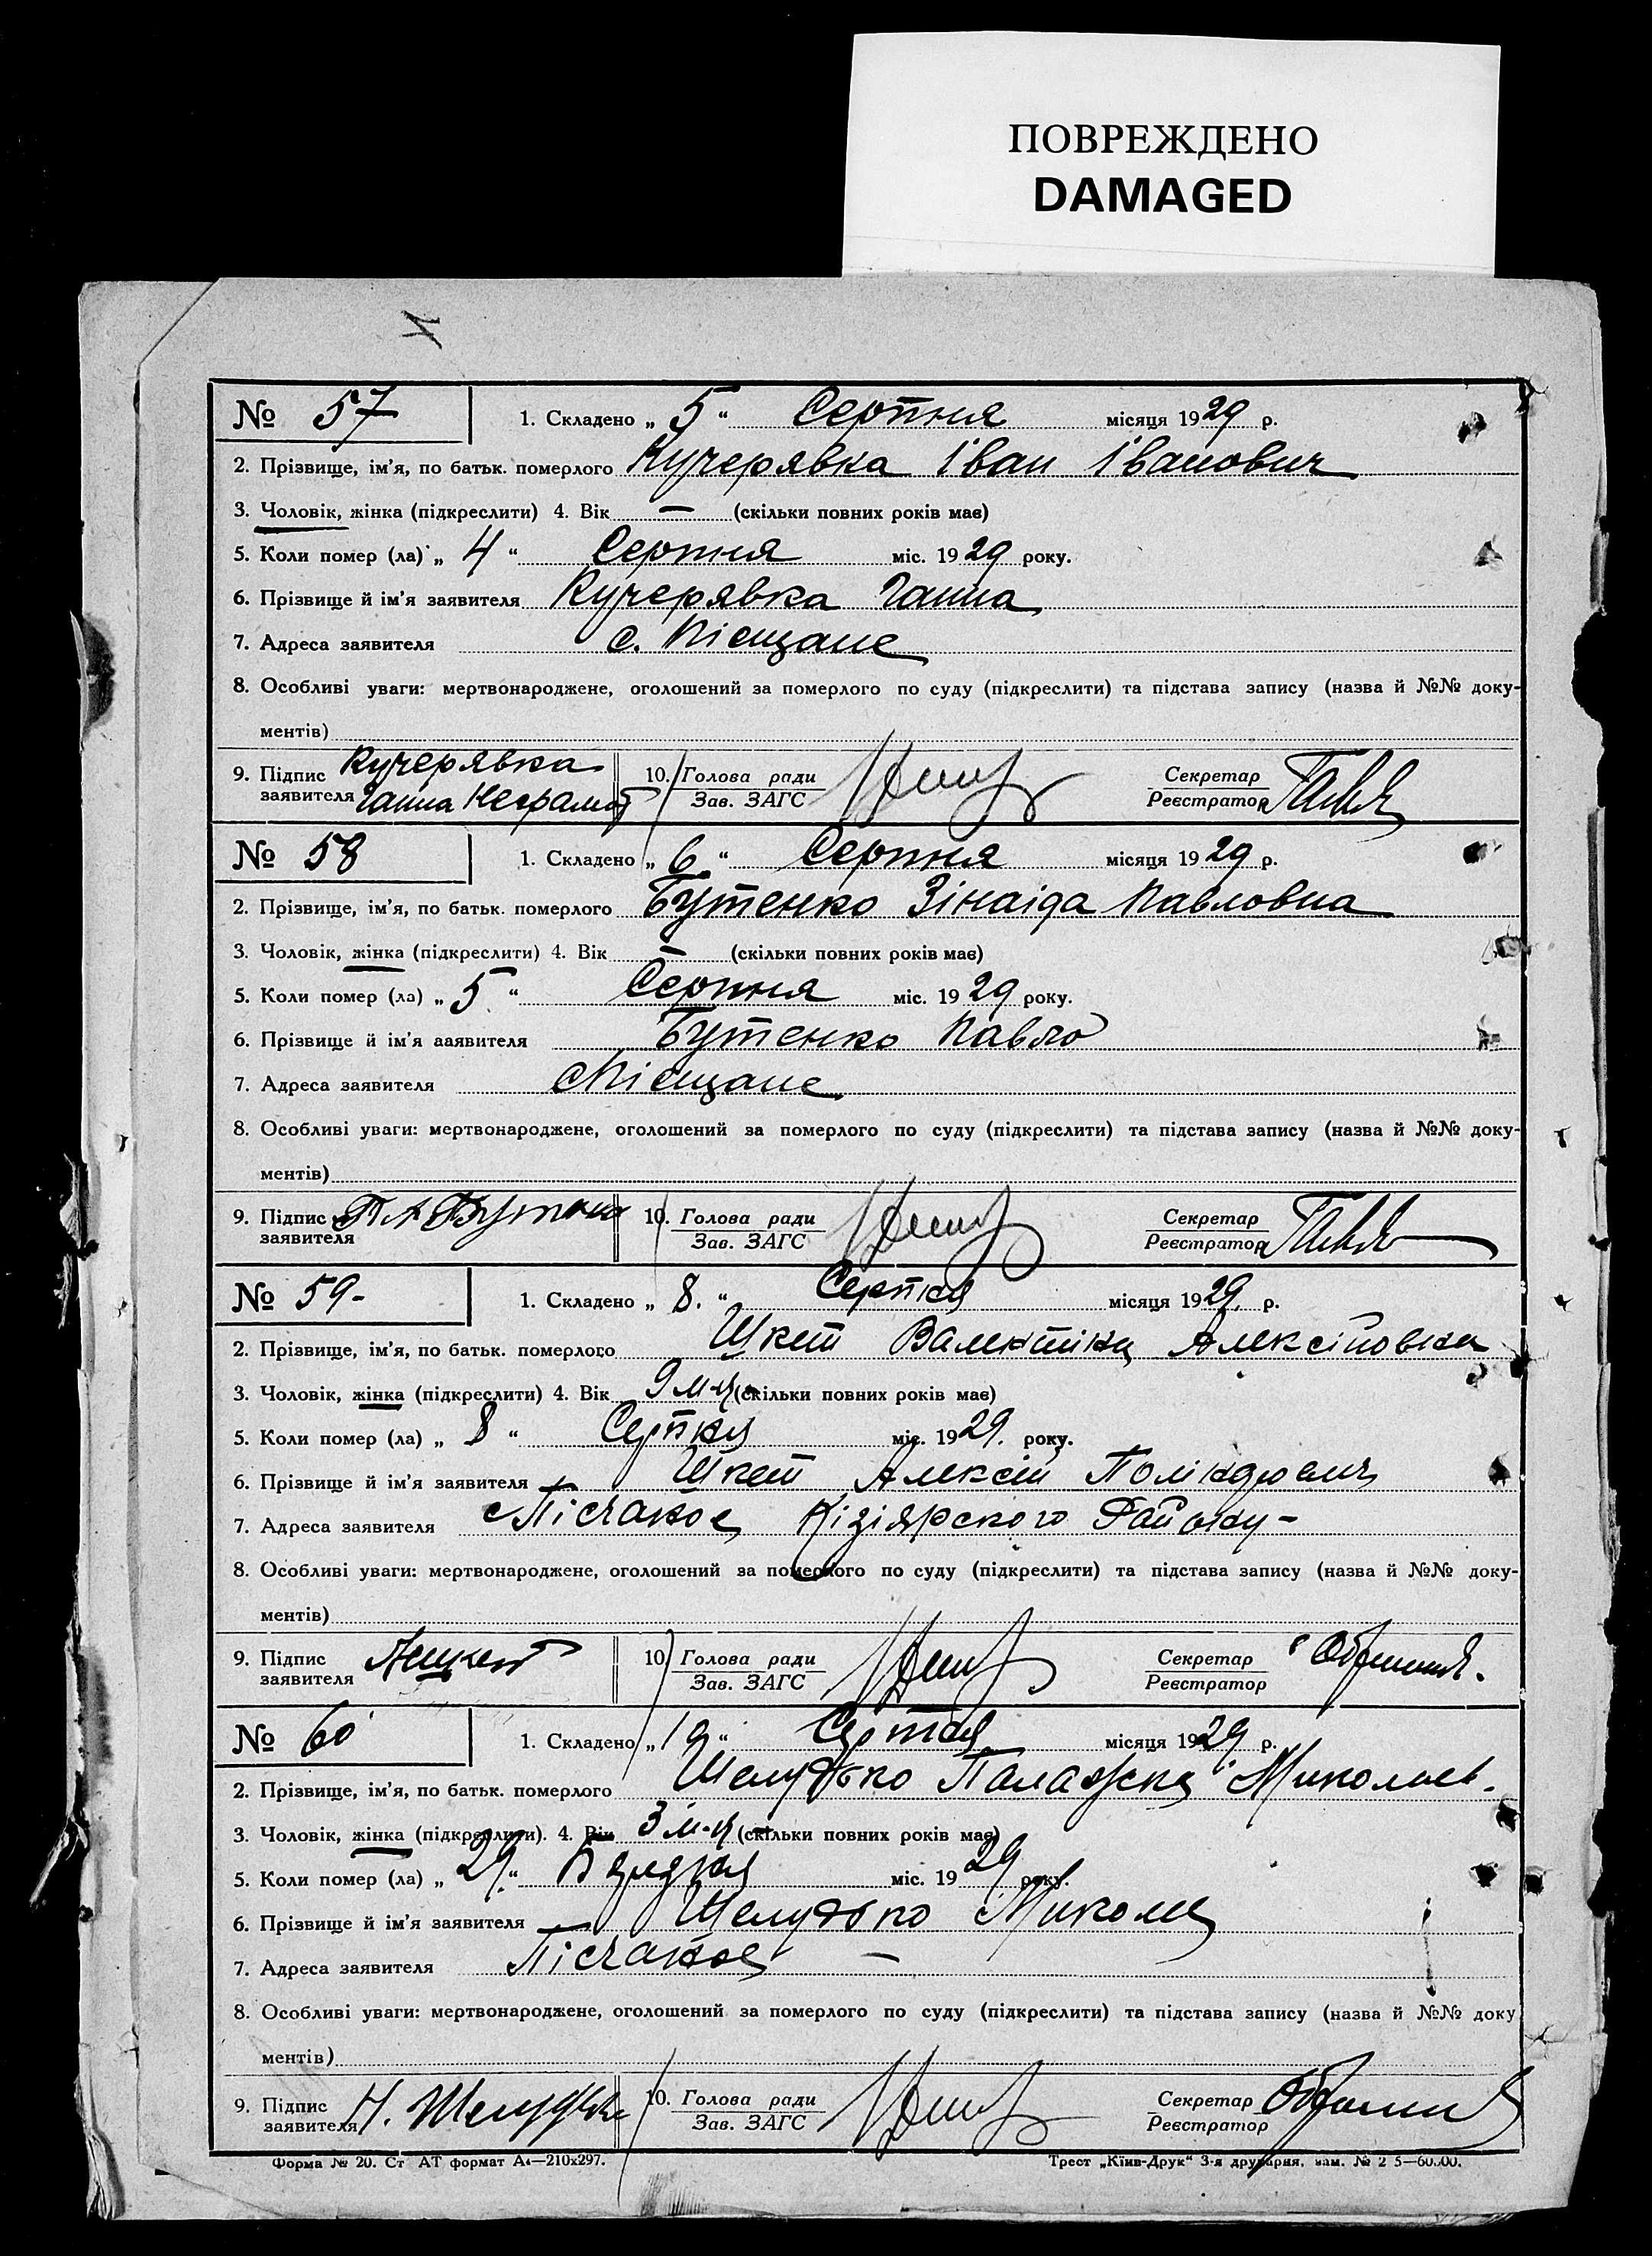 ПОВРЕЖДЕНО
DAMAGED
№ 57
1. Складено „ 5 “ Серпня місяця 1929 р.
2. Прізвище, ім’я, по батьк. померлого Кучерявка Іван Іванович
3. Чоловік, жінка (підкреслити) 4. Вік — (скільки повних років має)
5. Коли помер (ла) „ 4 “ Серпня міс. 1929 року.
6. Прізвище й ім’я заявителя Кучерявка Ганна
7. Адреса заявителя с. Піещане
8. Особливі уваги: мертвонароджене, оголошений за померлого по суду (підкреслити) та підстава запису (назва й №№ доку-
ментів)
9. Підпис заявителя Кучерявка Ганна Неграмот 10. Голова ради Зав. ЗАГС Секретар Реєстратор
№ 58
1. Складено „ 6 “ Серпня місяця 1929 р.
2. Прізвище, ім’я, по батьк. померлого Бутенко Зінаіда Павловна
3. Чоловік, жінка (підкреслити) 4. Вік — (скільки повних років має)
5. Коли помер (ла) „ 5 “ Серпня міс. 1929 року.
6. Прізвище й ім’я ааявителя Бутенко Павло
7. Адреса заявителя с Піещане
8. Особливі уваги: мертвонароджене, оголошений за померлого по суду (підкреслити) та підстава запису (назва й №№ доку-
ментів)
9. Підпис заявителя 10. Голова ради Зав. ЗАГС Секретар Реєстратор
№ 59-
1. Складено „ 8. “ Серпня місяця 1929. р.
2. Прізвище, ім’я, по батьк. померлого Шкет Валентіна Алексіповна
3. Чоловік, жінка (підкреслити) 4. Вік 9 м-ц (скільки повних років має)
5. Коли помер (ла) „ 8 “ Серпня міс. 1929. року.
6. Прізвище й ім’я заявителя Шкет Алексій
7. Адреса заявителя с Пісчаное Кізіярского Району-
8. Особливі уваги: мертвонароджене, оголошений за померлого по суду (підкреслити) та підстава запису (назва й №№ доку-
ментів)
9. Підпис заявителя Ашкет 10. Голова ради Зав. ЗАГС Секретар Реєстратор
№ 60
1. Складено „ 19 “ Серпня місяця 1929 р.
2. Прізвище, ім’я, по батьк. померлого Шелудько Палажка Миколаев-
3. Чоловік, жінка (підкреслити). 4. Вік 3 м-ц (скільки повних років має)
5. Коли помер (ла) „ 29. “ міс. 1929 року.
6. Прізвище й ім’я заявителя Шелудько Микола
7. Адреса заявителя Пісчаное —
8. Особливі уваги: мертвонароджене, оголошений за померлого по суду (підкреслити) та підстава запису (назва й №№ доку
ментів)
9. Підпис заявителя Н. Шелудько 10. Голова ради Зав. ЗАГС Секретар Реєстратор
Форма № 20. Ст АТ формат А4—210x297. Трест „Київ-Друк“ 3-я друкарня,